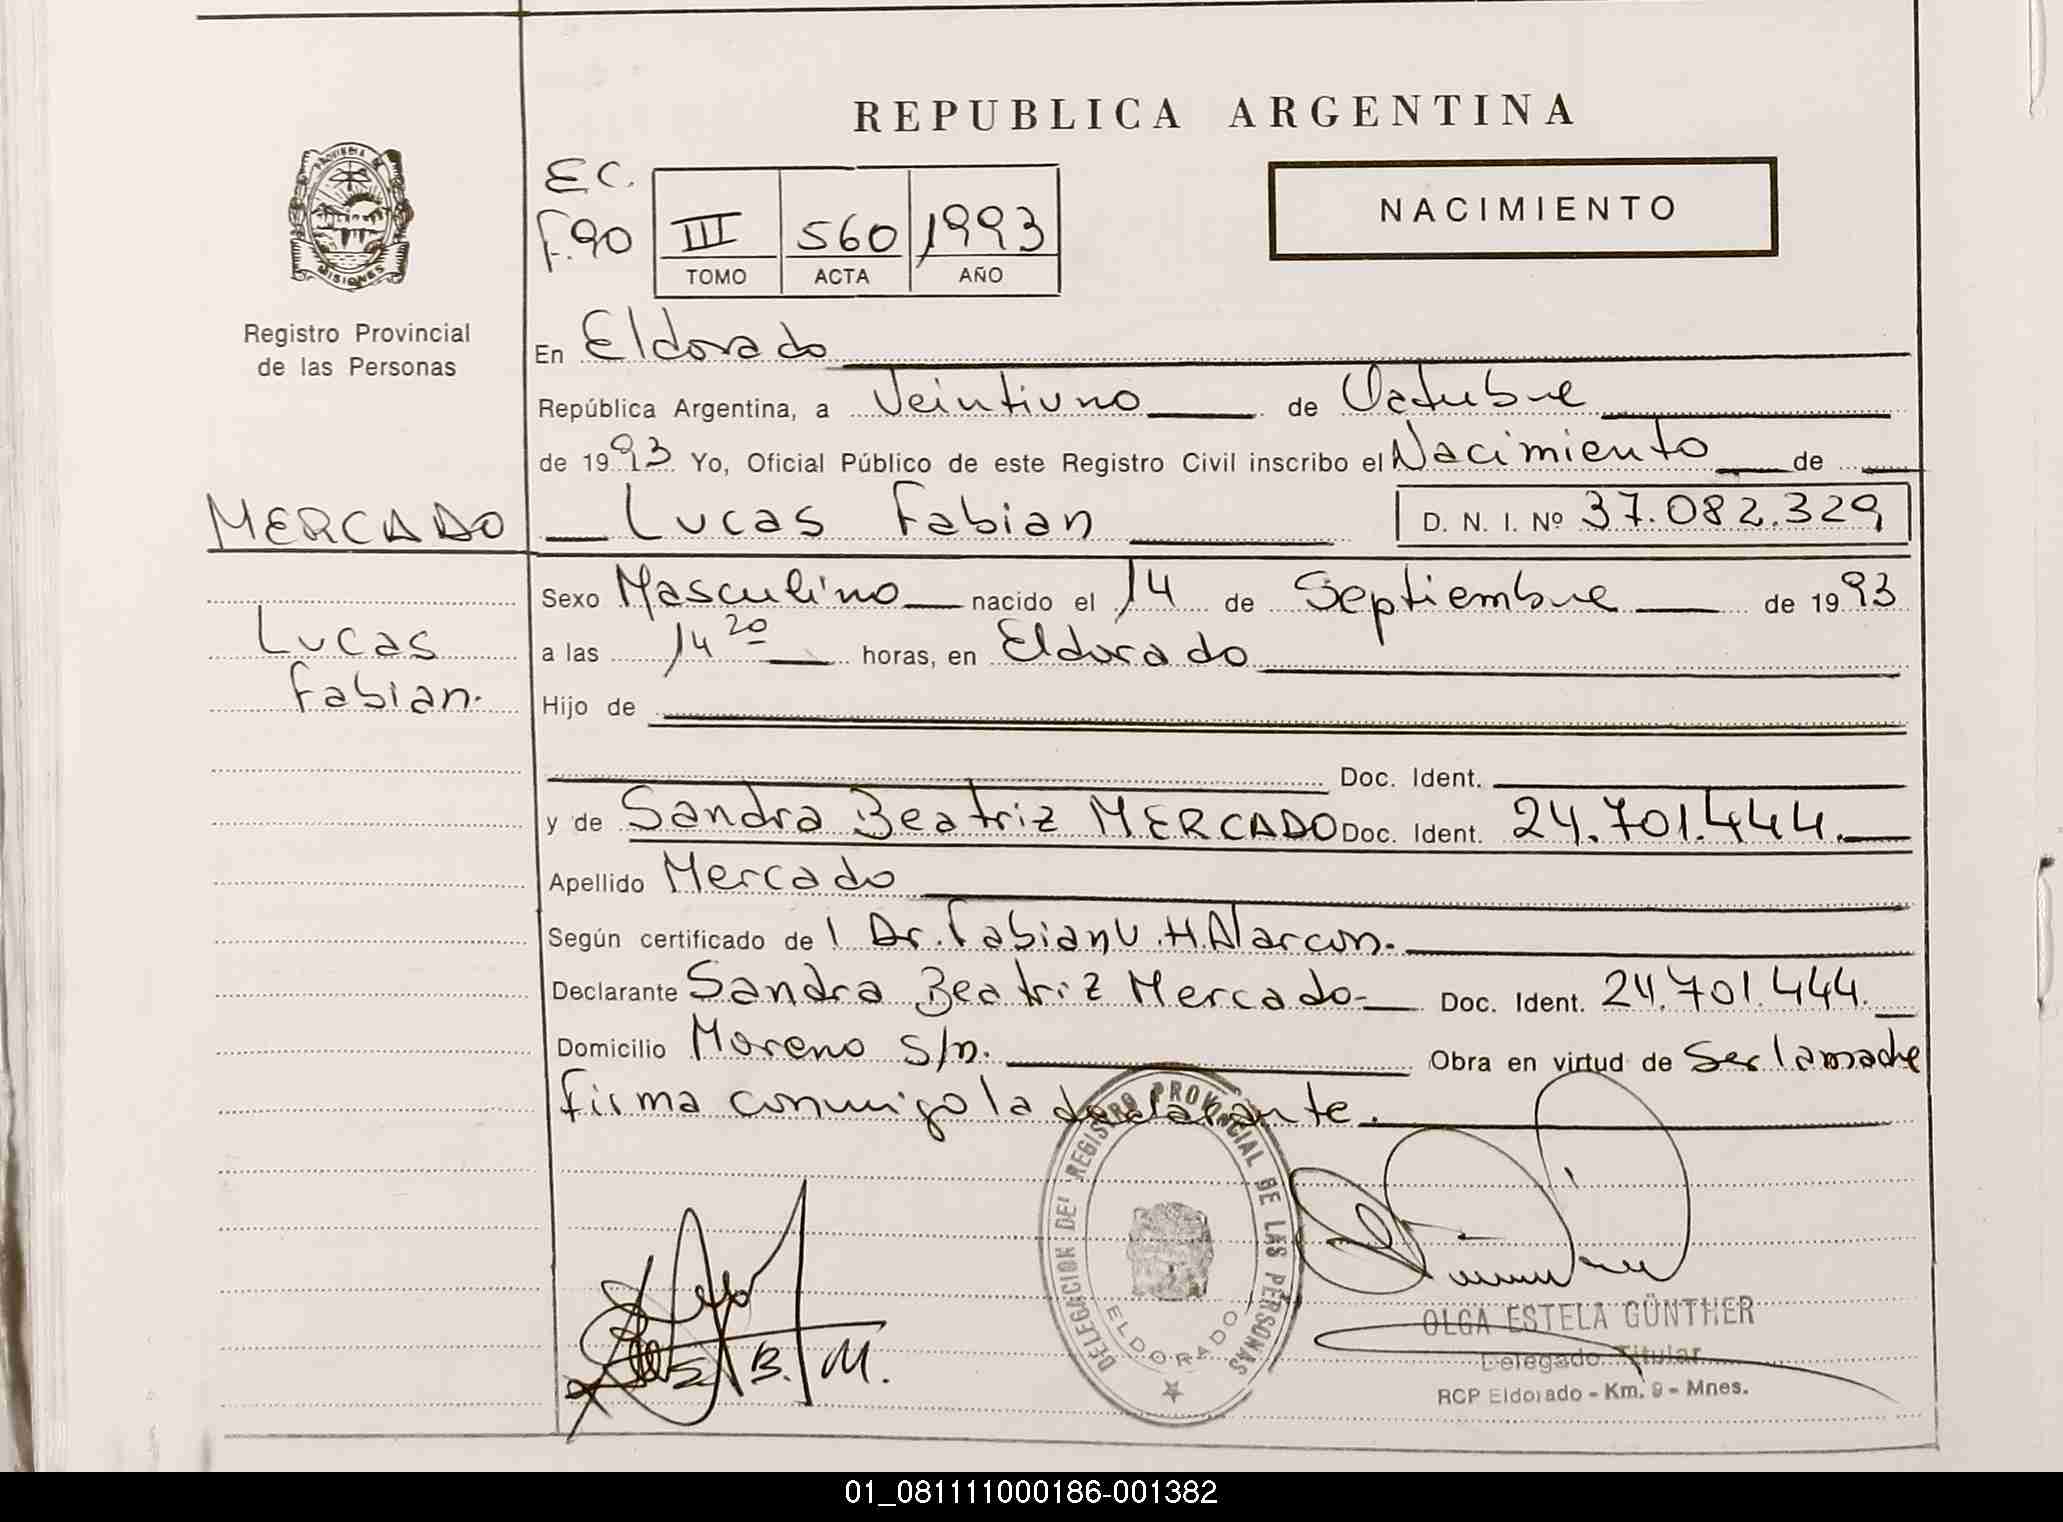 REPUBLICA ARGENTINA
PROVINCIA DE
MISIONES
Registro Provincial
de las Personas
E.C.
F.90
III 560 1993
TOMO ACTA AÑO
NACIMIENTO
En Eldorado
República Argentina, a Veintiuno de Octubre
de 1993 Yo, Oficial Público de este Registro Civil inscribo el Nacimiento de
MERCADO Lucas Fabian D. N. I. Nº 37.082.329
Sexo Masculino nacido el 14 de Septiembre de 1993
Lucas
Fabian.
a las 14 20 horas, en Eldorado
Hijo de
Doc. Ident.
y de Sandra Beatriz MERCADO Doc. Ident. 24.701.444.
Apellido Mercado
Según certificado de l Dr. Fabian V. H. Alarcon.
Declarante Sandra Beatriz Mercado- Doc. Ident. 24.701.444.
Domicilio Moreno s/n. Obra en virtud de Ser la madre
firma conmigo la declarante.
DELEGACION DEL REGISTRO PROVINCIAL DE LAS PERSONAS
ELDORADO
S. B. M.
OLGA ESTELA GÜNTHER
Delegado Titular
RCP Eldorado - Km. 9 - Mnes.
01_081111000186-001382